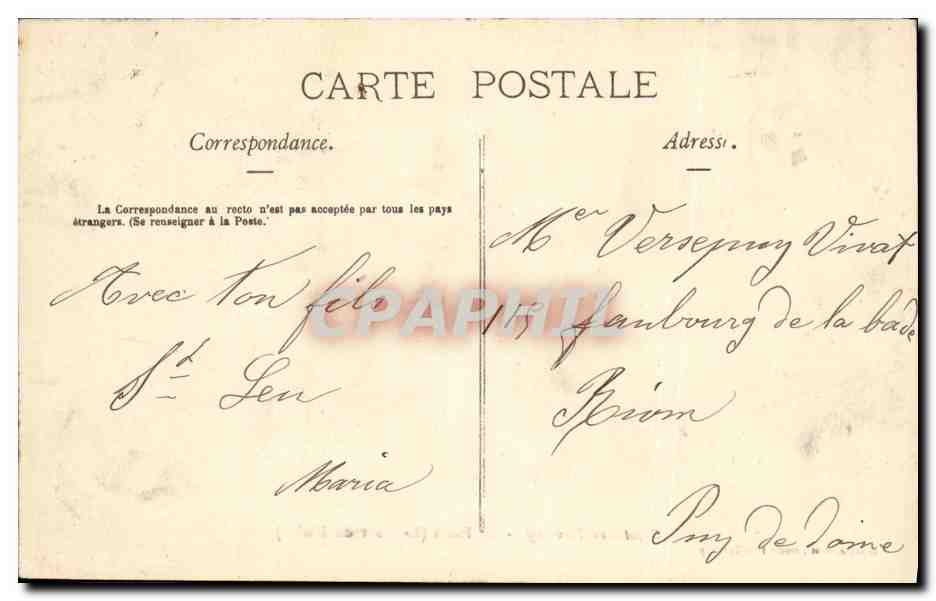 CARTE POSTALE
Correspondance.
La Correspondance au recto n'est pas acceptée par tous les pays
étrangers. (Se renseigner à la Poste.)
Avec ton fils
St Leu
Maria
Adresse.
Mer Versepuy Vivat
faubourg de la bade
Riom
Puy de dôme
CPAPHIL